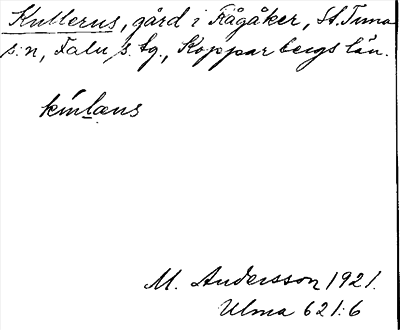 Kullerus, gård i Rågåker, St. Tuna
s:n, Falu s. tg., Kopparbergs län.
M. Andersson 1921.
Ulma 621:6